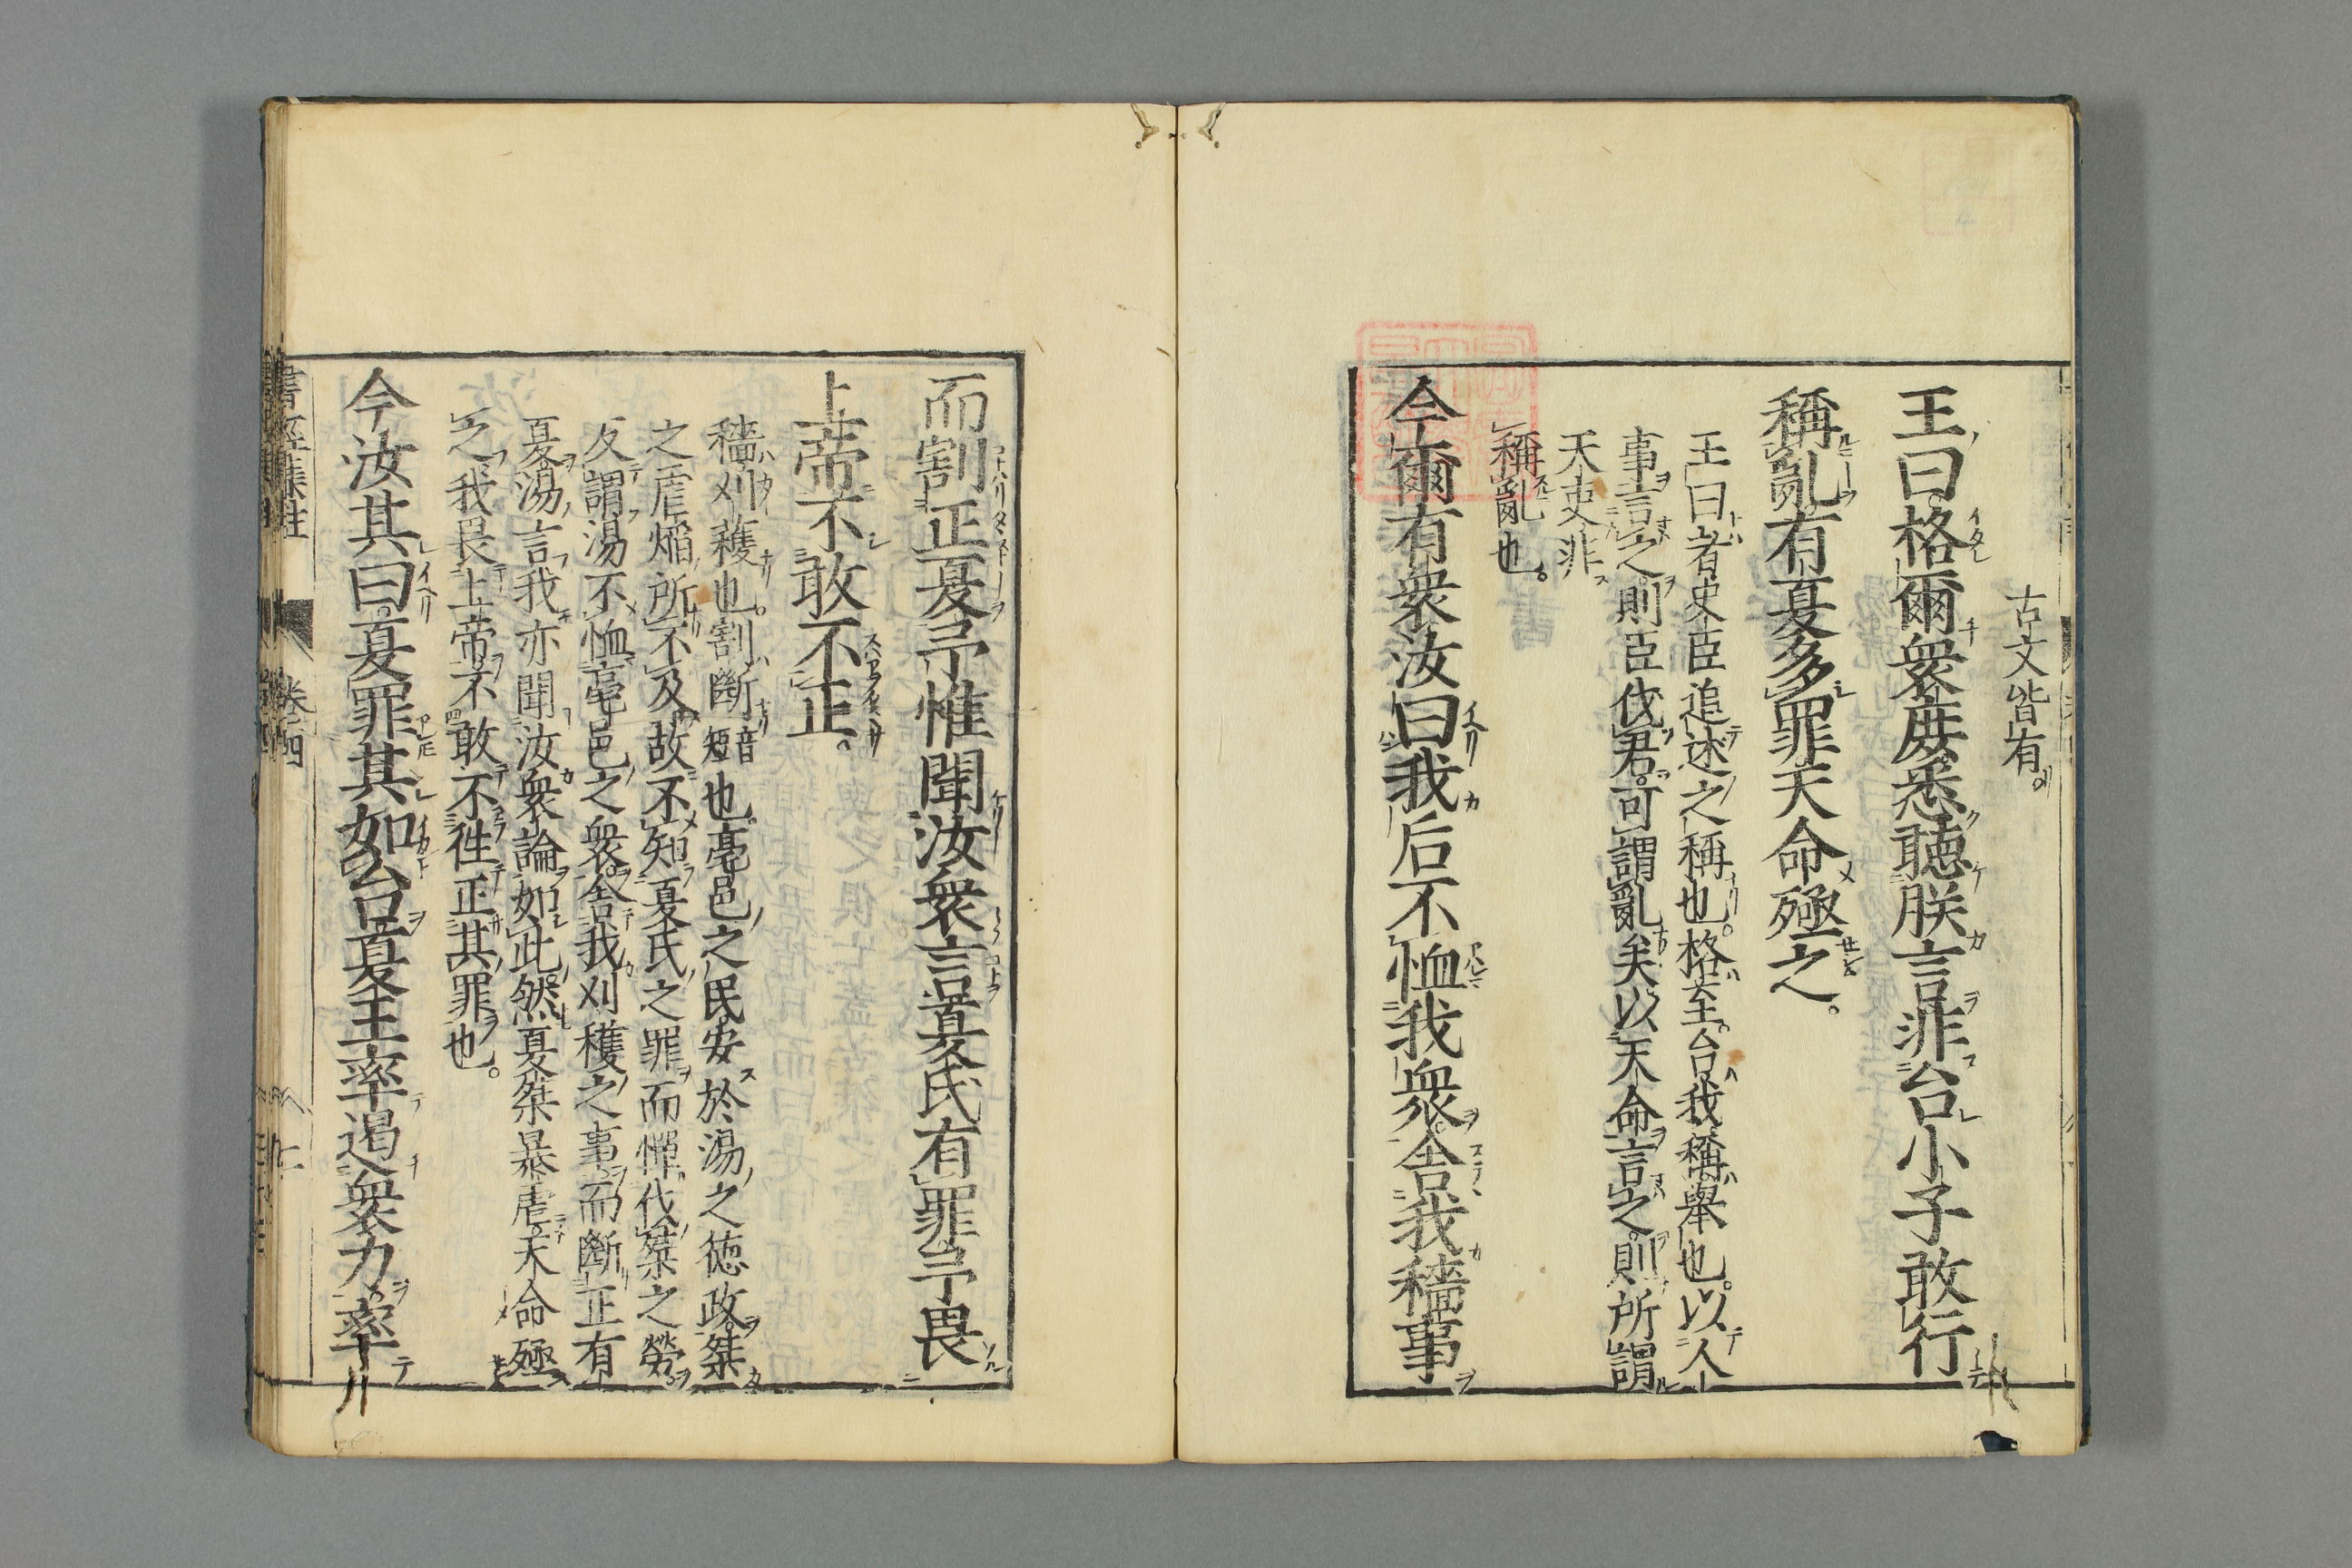 古文皆有。
王曰格爾衆庶悉聽朕言非台小子敢行
稱亂有夏多罪天命殛之。
王曰者史臣追述之稱也。格至。台我稱舉也。以人
事言之則臣伐君可謂亂矣以天命言之則所謂
天吏非
稱亂也。
今爾有衆汝曰我后不恤我衆舍我穡事
而割正夏予惟聞汝衆言夏氏有罪予畏
上帝不敢不正。
穡刈穫也。割斷音短也亳邑之民安於湯之德政桀
之虐焰所不及故不知夏氏之罪而憚伐桀之勞
反謂湯不恤亳邑之衆舍我刈穫之事而斷正有
夏湯言我亦聞汝衆論如此然夏桀暴虐天命殛
之我畏上帝不敢不往正其罪也。
今汝其曰夏罪其如台夏王率遏衆力率
書經集註 卷四